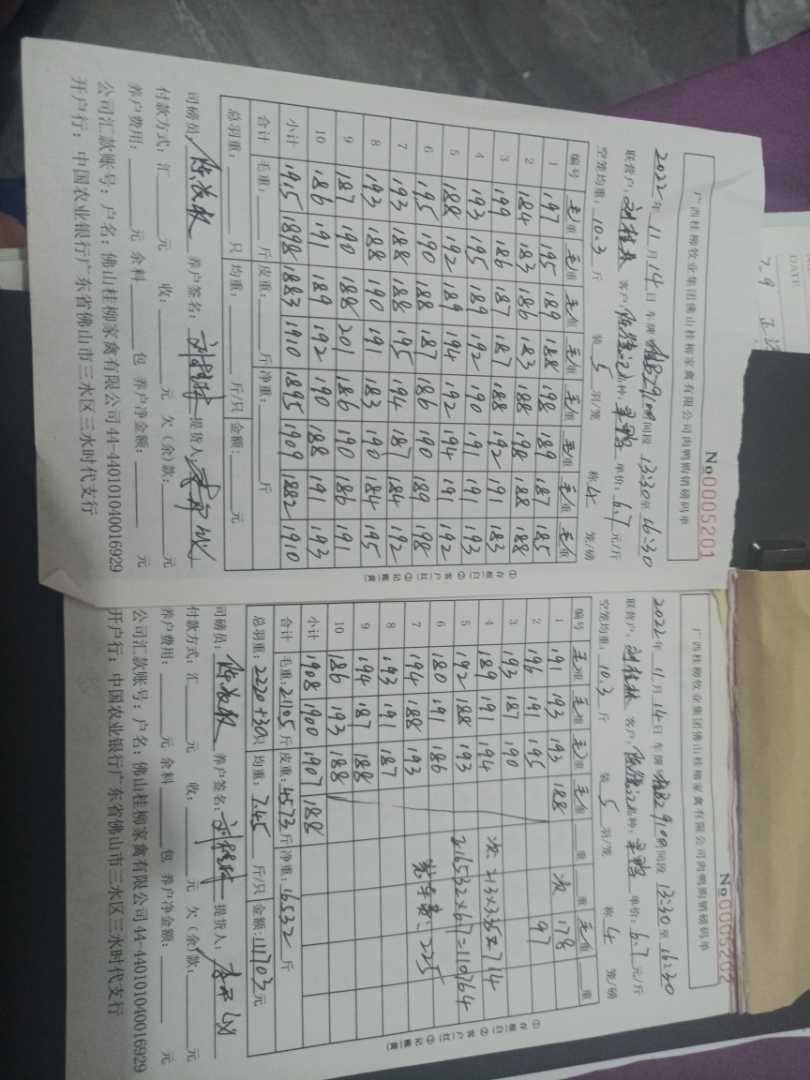 广西桂柳牧业集团佛山桂柳家禽有限公司肉鸭购销磅码单
No0005201
2022年11月14日 车牌 时间段 13:30至16:30
联营户: 客户: 品种: 单价: 6.7元/斤
空笼均重: 10.3 斤 装 5 羽/笼 称 4 笼/磅
编号 毛重 毛重 毛重 毛重 毛重 毛重 毛重 毛重
1 197 195 189 188 198 189 187 185
2 184 183 186 183 188 198 188 188
3 199 186 187 187 188 192 191 183
4 193 195 189 192 190 191 191 193
5 188 192 189 194 192 194 191 192
6 195 190 188 187 186 190 189 198
7 193 188 188 195 194 187 184 192
8 193 188 190 191 183 190 184 195
9 187 190 188 201 186 190 186 191
10 186 191 189 192 190 188 191 193
小计 1915 1898 1883 1910 1895 1909 1882 1910
合计 毛重: 斤 皮重: 斤 净重: 斤
总羽重: 只 均重: 斤/只 金额: 元
司磅员: 养户签名: 提货人:
付款方式:汇 元 收: 元 欠(余)款: 元
养户费用: 元 余料 包 养户净金额: 元
公司汇款账号:户名:佛山桂柳家禽有限公司44-440101040016929
开户行:中国农业银行广东省佛山市三水区三水时代支行
①存根(白)②客户(红)③记账(黄)
广西桂柳牧业集团佛山桂柳家禽有限公司肉鸭购销磅码单
No0005202
2022年11月14日 车牌 时间段 13:30至16:30
联营户: 客户: 品种: 单价: 6.7元/斤
空笼均重: 10.3 斤 装 5 羽/笼 称 4 笼/磅
编号 毛重 毛重 毛重 毛重 重 重 毛重 重
1 191 193 193 188 次 178
2 196 191 195 97
3 193 187 190
4 189 191 194 次: 213×3.35=714
5 192 188 193 16532×6.7=110764
6 180 191 186
7 194 188 193 225
8 193 191 187
9 194 187 188
10 186 193 188
小计 1908 1900 1907 188
合计 毛重: 21105斤 皮重: 4573斤 净重: 16532斤
总羽重: 2220+30只 均重: 7.45 斤/只 金额: 111703元
司磅员: 养户签名: 提货人:
付款方式:汇 元 收: 元 欠(余)款: 元
养户费用: 元 余料 包 养户净金额: 元
公司汇款账号:户名:佛山桂柳家禽有限公司44-440101040016929
开户行:中国农业银行广东省佛山市三水区三水时代支行
①存根(白)②客户(红)③记账(黄)
DATE